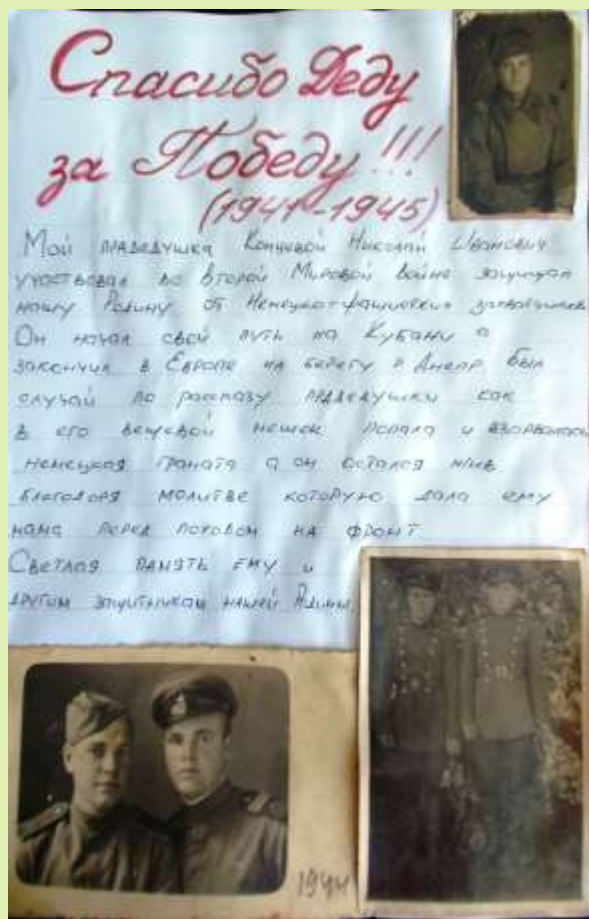 Спасибо Деду
за Победу!!!
(1941-1945)
Мой прадедушка Концевой Николай Иванович
участвовал во Второй Мировой Войне защищал
нашу Родину от Немецко-фашистских захватчиков
Он начал свой путь на Кубани а
закончил в Европе на берегу р Днепр. Был
случай по рассказу прадедушки как
в его вещевой мешок попала и взорвалась
немецкая граната а он остался жив
благодоря молитве которую дала ему
мама перед походом на фронт.
Светлая память ему и
другим защитникам нашей
1944